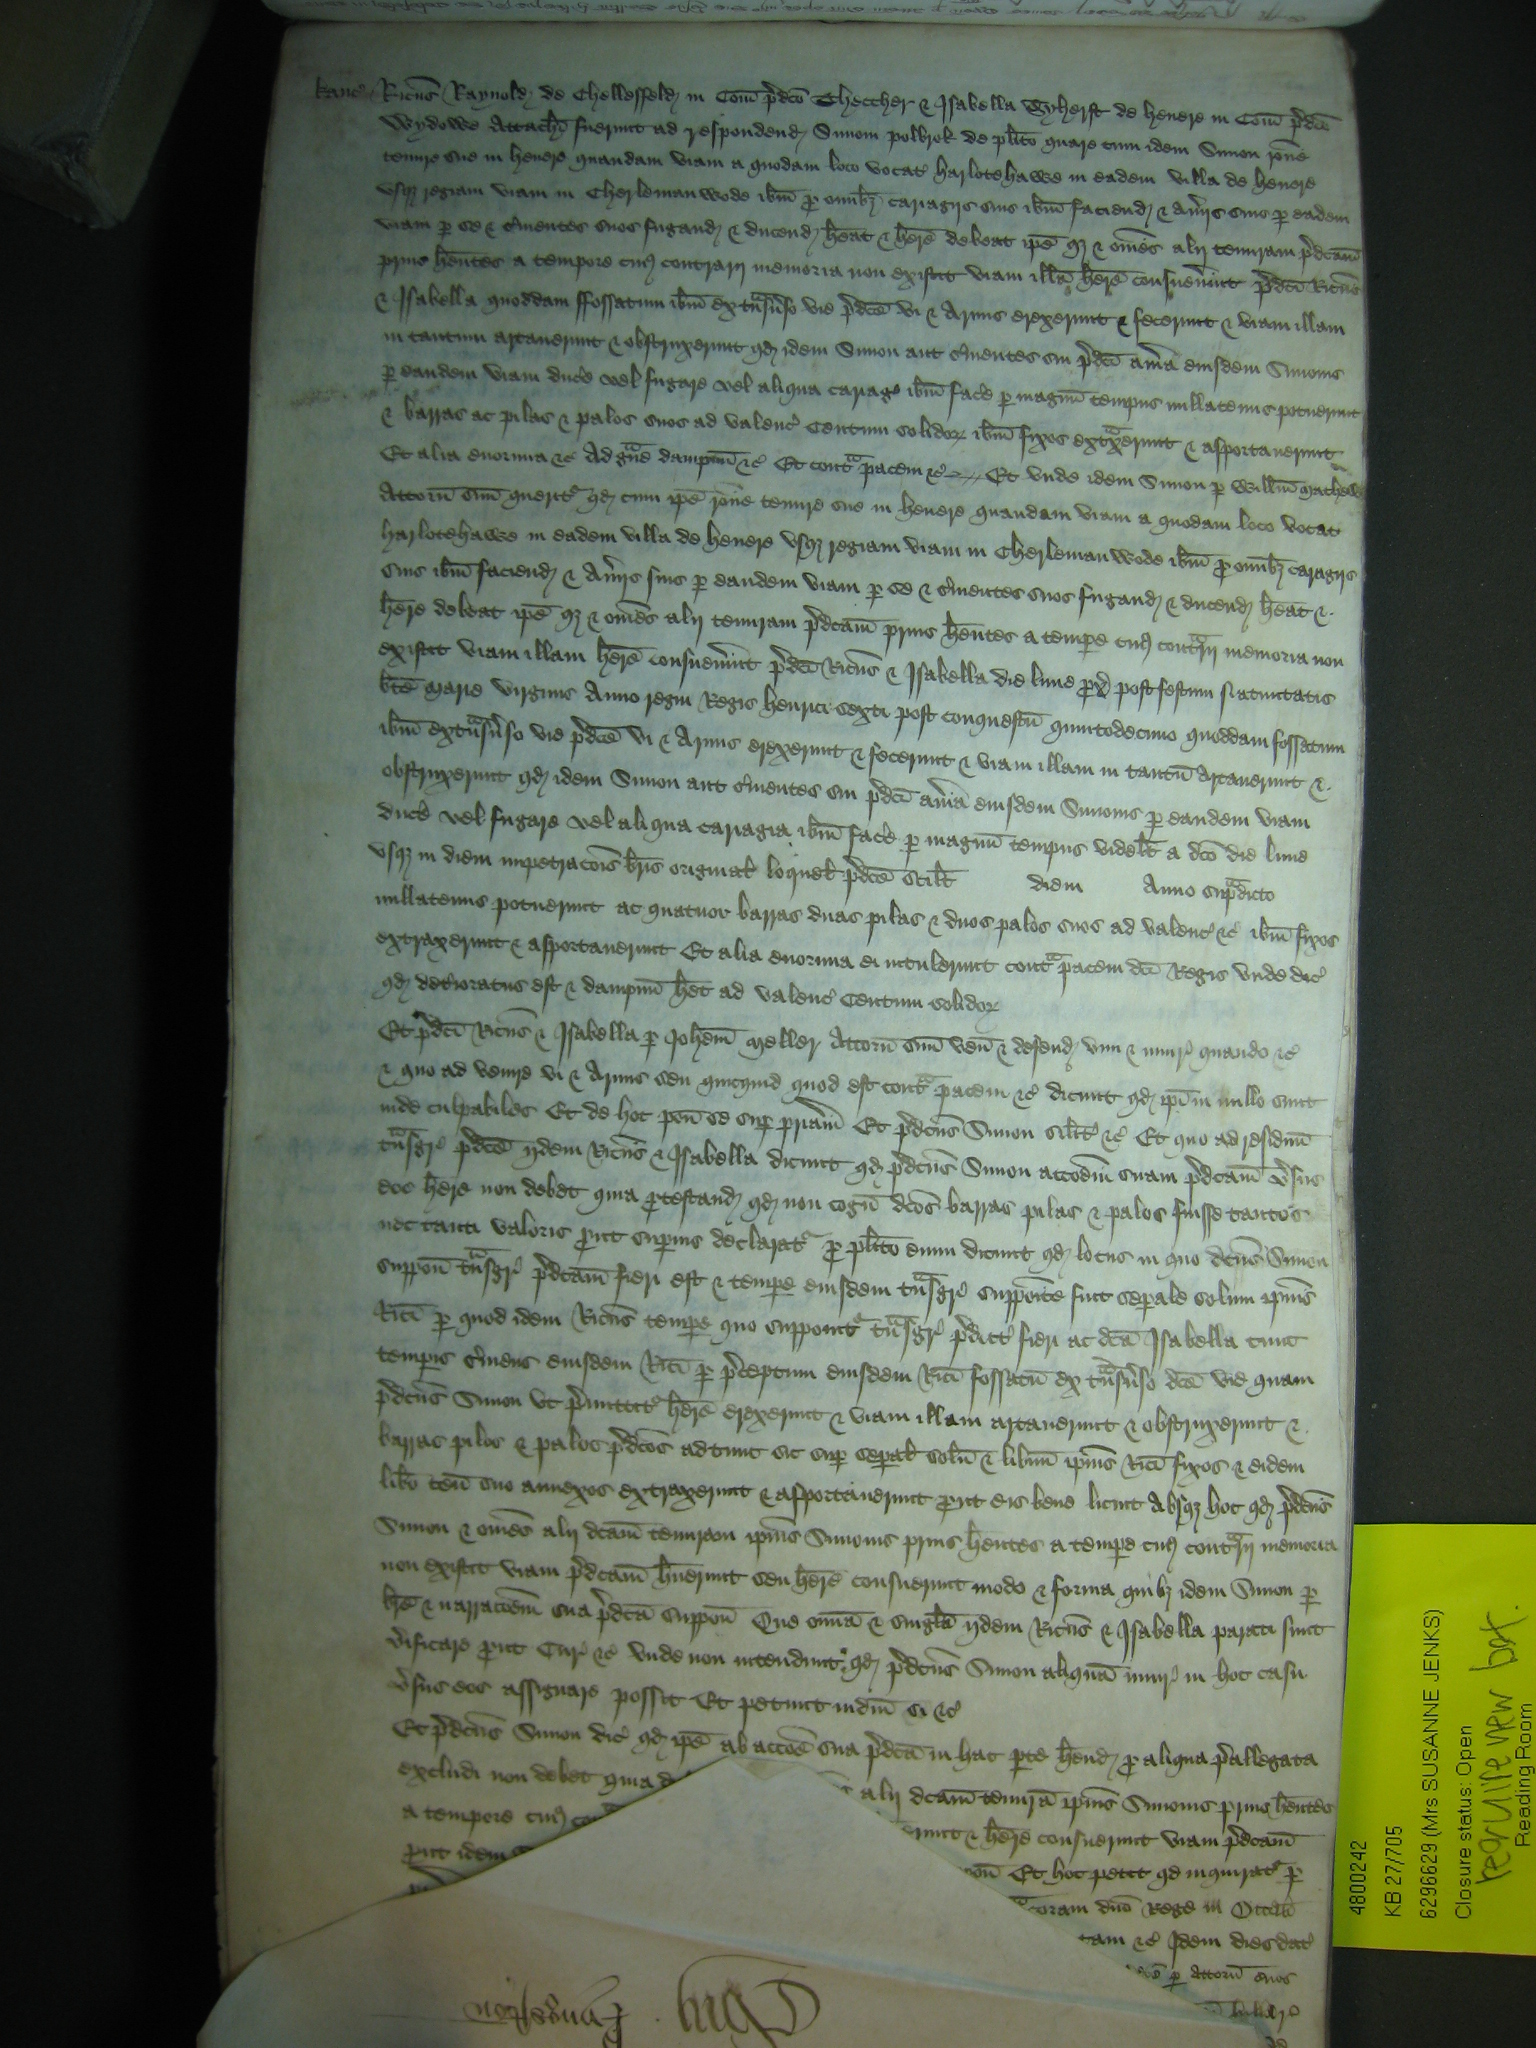 Kanc' Ricus Raynold de Chellesfeld in Com p̄dco Theccher & Isabella Wyherst de Hevere in Com p̄dco
Wydowe Attach fuerunt ad respondend Simoni Polbrok de plito quare cum idem Simon rōne
tenure sue in Hevere quandam viam a quodam loco vocat Harlotehawe in eadem villa de Hevere
usqz regiam viam in Cherlemanwode ibm p omnibz cariagijs suis ibm faciend & Aūijs suis p eadem
viam p se & s'vientes suos fugand & ducend heat & hēre debeat ipe qz & omes alij tenuram p̄dcam
prius hentes a tempore cuj contrarij memoria non existit viam illā hēre consuev'int p̄dci Ricus
& Isabella quoddam ffossatum ibm ex tnsu'so vie p̄dce vi & Armis erexerunt & fecerunt & viam illam
in tantum artaverunt & obstruxerunt qd idem Simon aut s'vientes sui p̄dci aūia eiusdem Simonis
p eandem viam duc'e vel fugare vel aliqua cariag' ibm fac'e p magnū tempus nullatenus potuerunt
& barras ac pilas & palos suos ad valenc' Centum solidor ibm fixos extraxerunt & asportaverunt
Et alia enormia &c Ad gūe dampnū &c Et conta pacem &c Et unde idem Simon p Willm Mathew
Attorn suū querit' qd cum ipe rōne tenure sue in Hevere quandam viam a quodam loco vocat
Harlotehawe in eadem villa de Hevere usqz regiam viam in Cherlemanwode ibm p omibz cariagijs
suis ibm faciend & Aūijs suis p eandem viam p se & s'vientes suos fugand & ducend heat &
hēre debeat ipe qz & omēs alij tenuram p̄dcam prius hēntes a tempe cuj contrarij memoria non
existit viam illam hēre consuev'int p̄dci Ricus & Isabella die lune px post festum Nativitatis
bte Marie Virginis Anno regni Regis Henrici sexti post conquestū quintodecimo quoddam fossatum
ibm ex tnsu'so vie p̄dce vi & Armis erexerunt & fecerunt & viam illam in tantū artaverunt &
obstruxerunt qd idem Simon aut s'vientes sui p̄dci aūia eiusdem Simonis p eandem viam
duc'e vel fugare vel aliqua cariagia ibm fac'e p magnū tempus videlt a dco die lune
usqz in diem impetracois bris original loquele p̄dce scilt diem Anno sup̄dicto
nullatenus potuerunt ac quatuor barras duas pilas & duos palos suos ad valenc' &c ibm fixos
extraxerunt & asportaverunt Et alia enormia ei intulerunt conta pacem dci Regis unde dic'
qd det'ioratus est & dampnū het ad valenc' Centum solidor
Et p̄dci Ricus & Isabella p Johem Meller Attorn suū veniunt & defend vim & iniur' quando &c
& quo ad venire vi & Armis seu quicquid quod est conta pacem &c dicunt qd ipi in nullo sunt
inde culpabiles Et de hoc pon se sup pr̄iam Et p̄dcus Simon silit' &c Et quo ad residuū
tnsgr' p̄dce ijdem Ricus & Isabella dicunt qd p̄dcus Simon accoem suam p̄dcam v'sus
eos hēre non debet quia p̄testand qd non cogn dcos barras pilas & palos fuisse tantos
nec tanti valoris p̄ut superius declarat' p plito enim dicunt qd locus in quo dcus Simon
suppon tnsgr' p̄dcam fieri est & tempe eiusdem tnsgr' supposite fuit sepale solum ipius
Rici p quod idem Ricus tempe quo supponit' tnsgr' p̄dict' fieri ac dca Isabella tunc
temporis s'viens eiusdem Rici p p̄ceptum eiusdem Rici fossatū ex tnsu'so dce vie quam
p̄dcus Simon ut p̄mittit' hēre erexerunt & viam illam artaverunt & obstruxerunt &
barras pilas & palos p̄dcos adtunc sic sup sepale solū & libum ipius Rici fixos & eidem
libo ten suo annexos extraxerunt & asportaverunt p̄ut eis bene licuit Absqz hoc qd p̄dcus
Simon & omes alij dcam tenuram ipius Simonis prius hentes a tempe cuj contrarij memoria
non existit viam p̄dcam huerunt seu hēre consuerunt modo & forma quibz idem Simon p
bre & narracoem sua p̄dca suppon Que omia & singla ijdem Ricus & Isabella parati sunt
v'ificare p̄ut Cur' &c unde non intendunt qd p̄dcus Simon aliquā iniur' in hoc casu
v'sus eos assignare possit Et petunt iudm si &c
Et p̄dcus Simon dic' qd ipe ab accoe sua p̄dca in hac pte hend p aliqua p̄allegata
excludi non debet quia alij dcam tenurā ipius Simonis prius hentes
a tempore cuj erunt & hēre consuerunt viam p̄dcam
p̄ut idem Et hoc petit qd inquirat' p
coram dno Rege in Octab
tam &c Idem dies dat'
p Attorn suos
4800242
KB 27/705
6296629 (Mrs SUSANNE JENKS)
Closure status: Open
require new box.
Reading Room